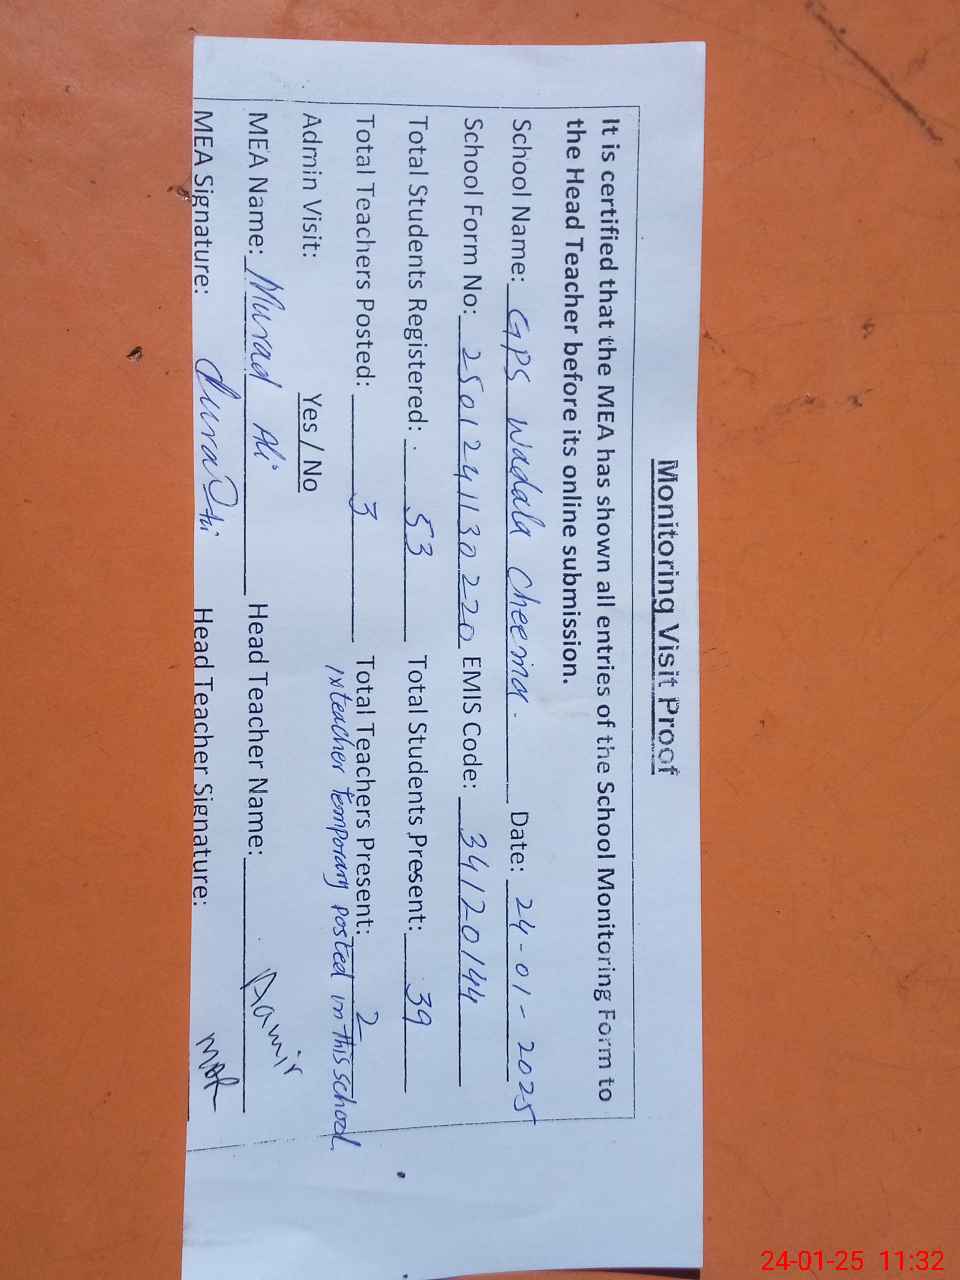 Monitoring Visit Proof
It is certified that the MEA has shown all entries of the School Monitoring Form to
the Head Teacher before its online submission.
School Name: GPS Wadala Cheema. Date: 24-01-2025
School Form No: 2501241130220 EMIS Code: 34120144
Total Students Registered: 53 Total Students Present: 39
Total Teachers Posted: 3 Total Teachers Present: 2
Admin Visit: Yes / No teacher temporary posted in this school
MEA Name: Murad Ali Head Teacher Name: Aamir
MEA Signature: Head Teacher Signature:
24-01-25 11:32